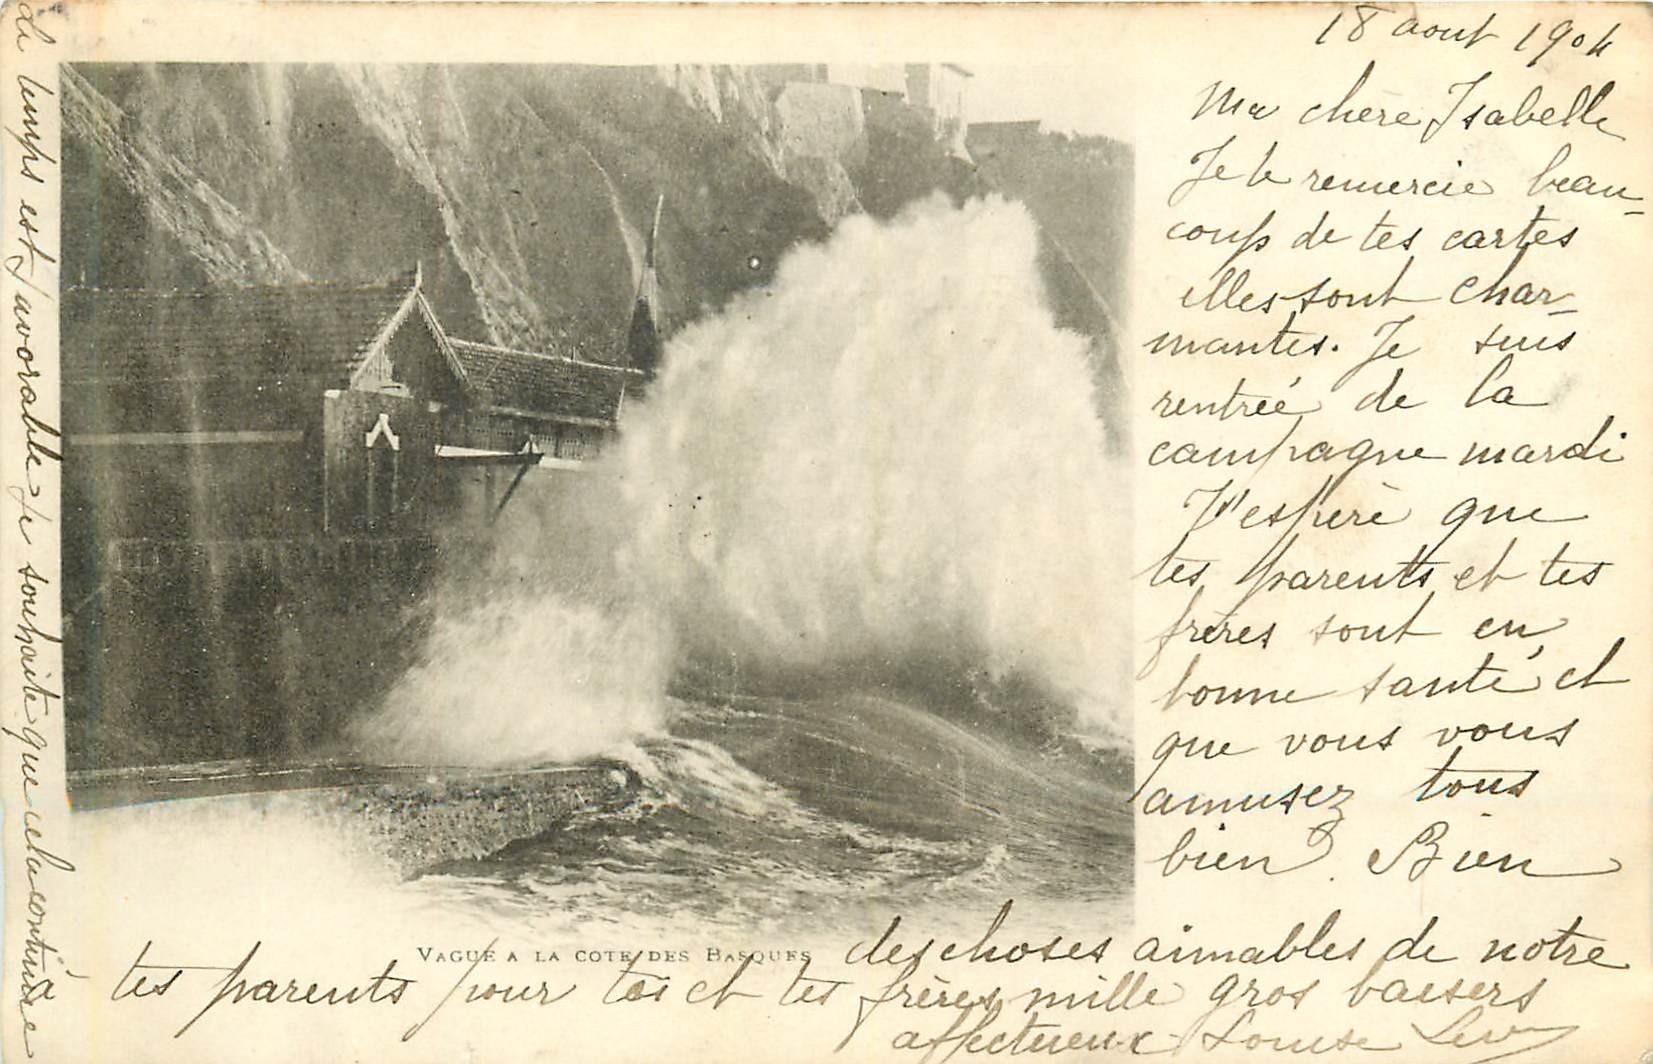 18 aout 1904
Ma chère Isabelle
Je te remercie beau-
coup de tes cartes
elles sont char-
mantes. Je suis
rentrée de la
campagne mardi
J'espère que
tes parents et tes
frères sont en
bonne santé et
que vous vous
amusez tous
bien. Bien
des choses aimables de notre
tes parents pour toi et tes frères mille gros baisers
affectueux Louise
VAGUE A LA COTE DES BASQUES
temps est favorable je souhaite que cela continue